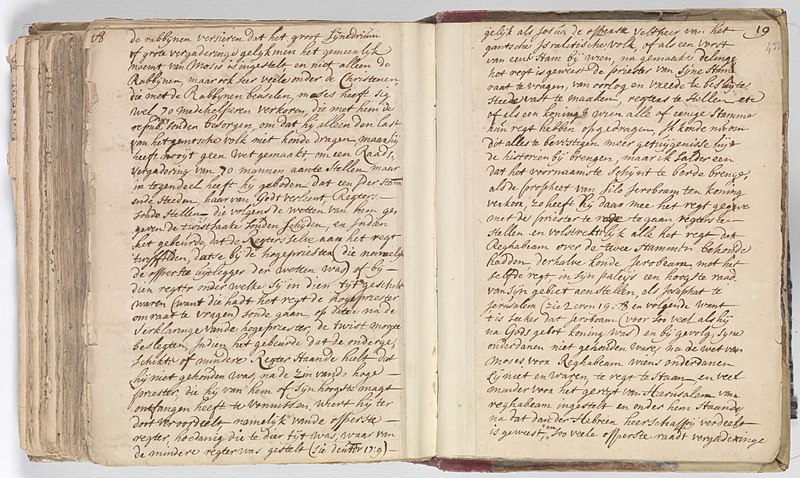 18
de rabbijnen versieren dat het groot Synedrium
of groote vergaderinge gelyk men het gemeenlijk
noemt van Moses is ingestelt en niet alleen de
Rabbijnen maar ook seer veele onder de Christenen,
die met de Rabbynen heulen, moses heeft sig
wel 70 medehelpers verkoren die met hem de
souden besorgen, om dat hij alleen den last
van het gantsche volk niet konde dragen, maar hij
heeft nooyt geen wet gemaakt om een Raads,
vergadering van 70 mannen aan te stellen maar
in tegendeel heeft hij geboden dat een yder stam
in de Steeden, haar van Godt verleent, Regters
soude stellen die volgens de wetten van hem ge
geven de twistsaake souden schyden, en indien
het gebeurde dat de Regters selve aan het regt
twyffelden, dat se bij de hogepriester die namelijk
de opperste uytlegger der wetten was of bij
dien regter onder welke sij in dien tijt gestelt
waren (want die hadt het regt de hogepriester
om raat te vragen) soude gaan, op dat se na de
verklaringe van de hogepriester de twist mogte
beslegten, indien het gebeurde dat de onderge,
schikte of mindere Regter staande hielt dat
hij niet gehouden was, na de zin van de hoge
priester, die hij van hem of syn hoogste magt
ontfangen heeft te vonnissen, wiert hij ter
doot veroordeelt, namelijk van de opperste
regter, hoedanig die te dier tijt was, waar van
de mindere regter was gestelt (sie deutr 17:9)
19
gelijk als Josua de opperste veltheer van het
gantsche Israelitische volk, of als een vorst
van eene stam bij wien, na gemaakte delinge
het regt is geweest de priester van syne stam
raat te vragen, van oorlog en vreede te besluyte
steede vast te maaken, regters te stellen etc
of als een koning wien alle of eenige stamme
hun regt hebben opgedragen, Ik konde nu om
dit alles te bevestigen meer getuygenisse uyt
de historien bij brengen, maar ik sal der een
dat het voornaamste schynt te berde brenge,
als de propheet van Silo Jerobeam ten koning
verkoor, zo heeft hij daar mee het regt gegeve
met de priester te rade te gaan regters te
stellen en volstrektelijk alle het regt dat
Reghabeam over de twee stammen behoude
hadden, derhalve konde Jerobeam, met het
selfde regt in syn paleys een hoogste raad
van syn gebiet aenstellen, als Josaphat te
Jerusalem (zie 2 cron 19:8 en volgende want
't is seeker dat Jerobeam (voor soo veel als hij
na Gods gebot koning was) en bij gevolg, syne
onderdanen niet gehouden ware, na de wet van
Moses voor Reghabeam wiens onderdanen
sij niet en waren, te regt te staan en veel
minder voor het geregt van Jerusalem van
reghabeam ingestelt en onder hem staande,
na dat dan der Hebreen heerschappij verdeelt
is geweest, soo veele opperste raadt vergaderinge